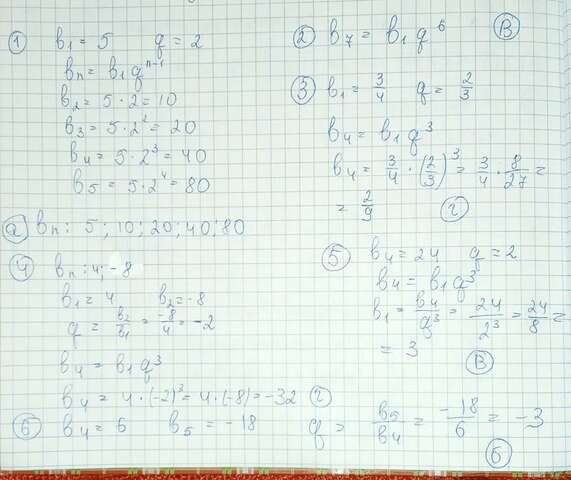 ① b₁ = 5 q = 2
bₙ = b₁qⁿ⁻¹
b₂ = 5 · 2 = 10
b₃ = 5 · 2² = 20
b₄ = 5 · 2³ = 40
b₅ = 5 · 2⁴ = 80
ⓐ bₙ : 5 ; 10 ; 20 ; 40 ; 80
② b₇ = b₁q⁶ В
③ b₁ = 3/4 q = 2/3
b₄ = b₁q³
b₄ = 3/4 · (2/3)³ = 3/4 · 8/27 =
= 2/9 г
④ bₙ : 4 ; -8
b₁ = 4 b₂ = -8
q = b₂/b₁ = -8/4 = -2
b₄ = b₁q³
b₄ = 4 · (-2)³ = 4 · (-8) = -32 г
⑤ b₄ = 24 q = 2
b₄ = b₁q³
b₁ = b₄/q³ = 24/2³ = 24/8 =
= 3
В
⑥ b₄ = 6 b₅ = -18 q = b₅/b₄ = -18/6 = -3
б